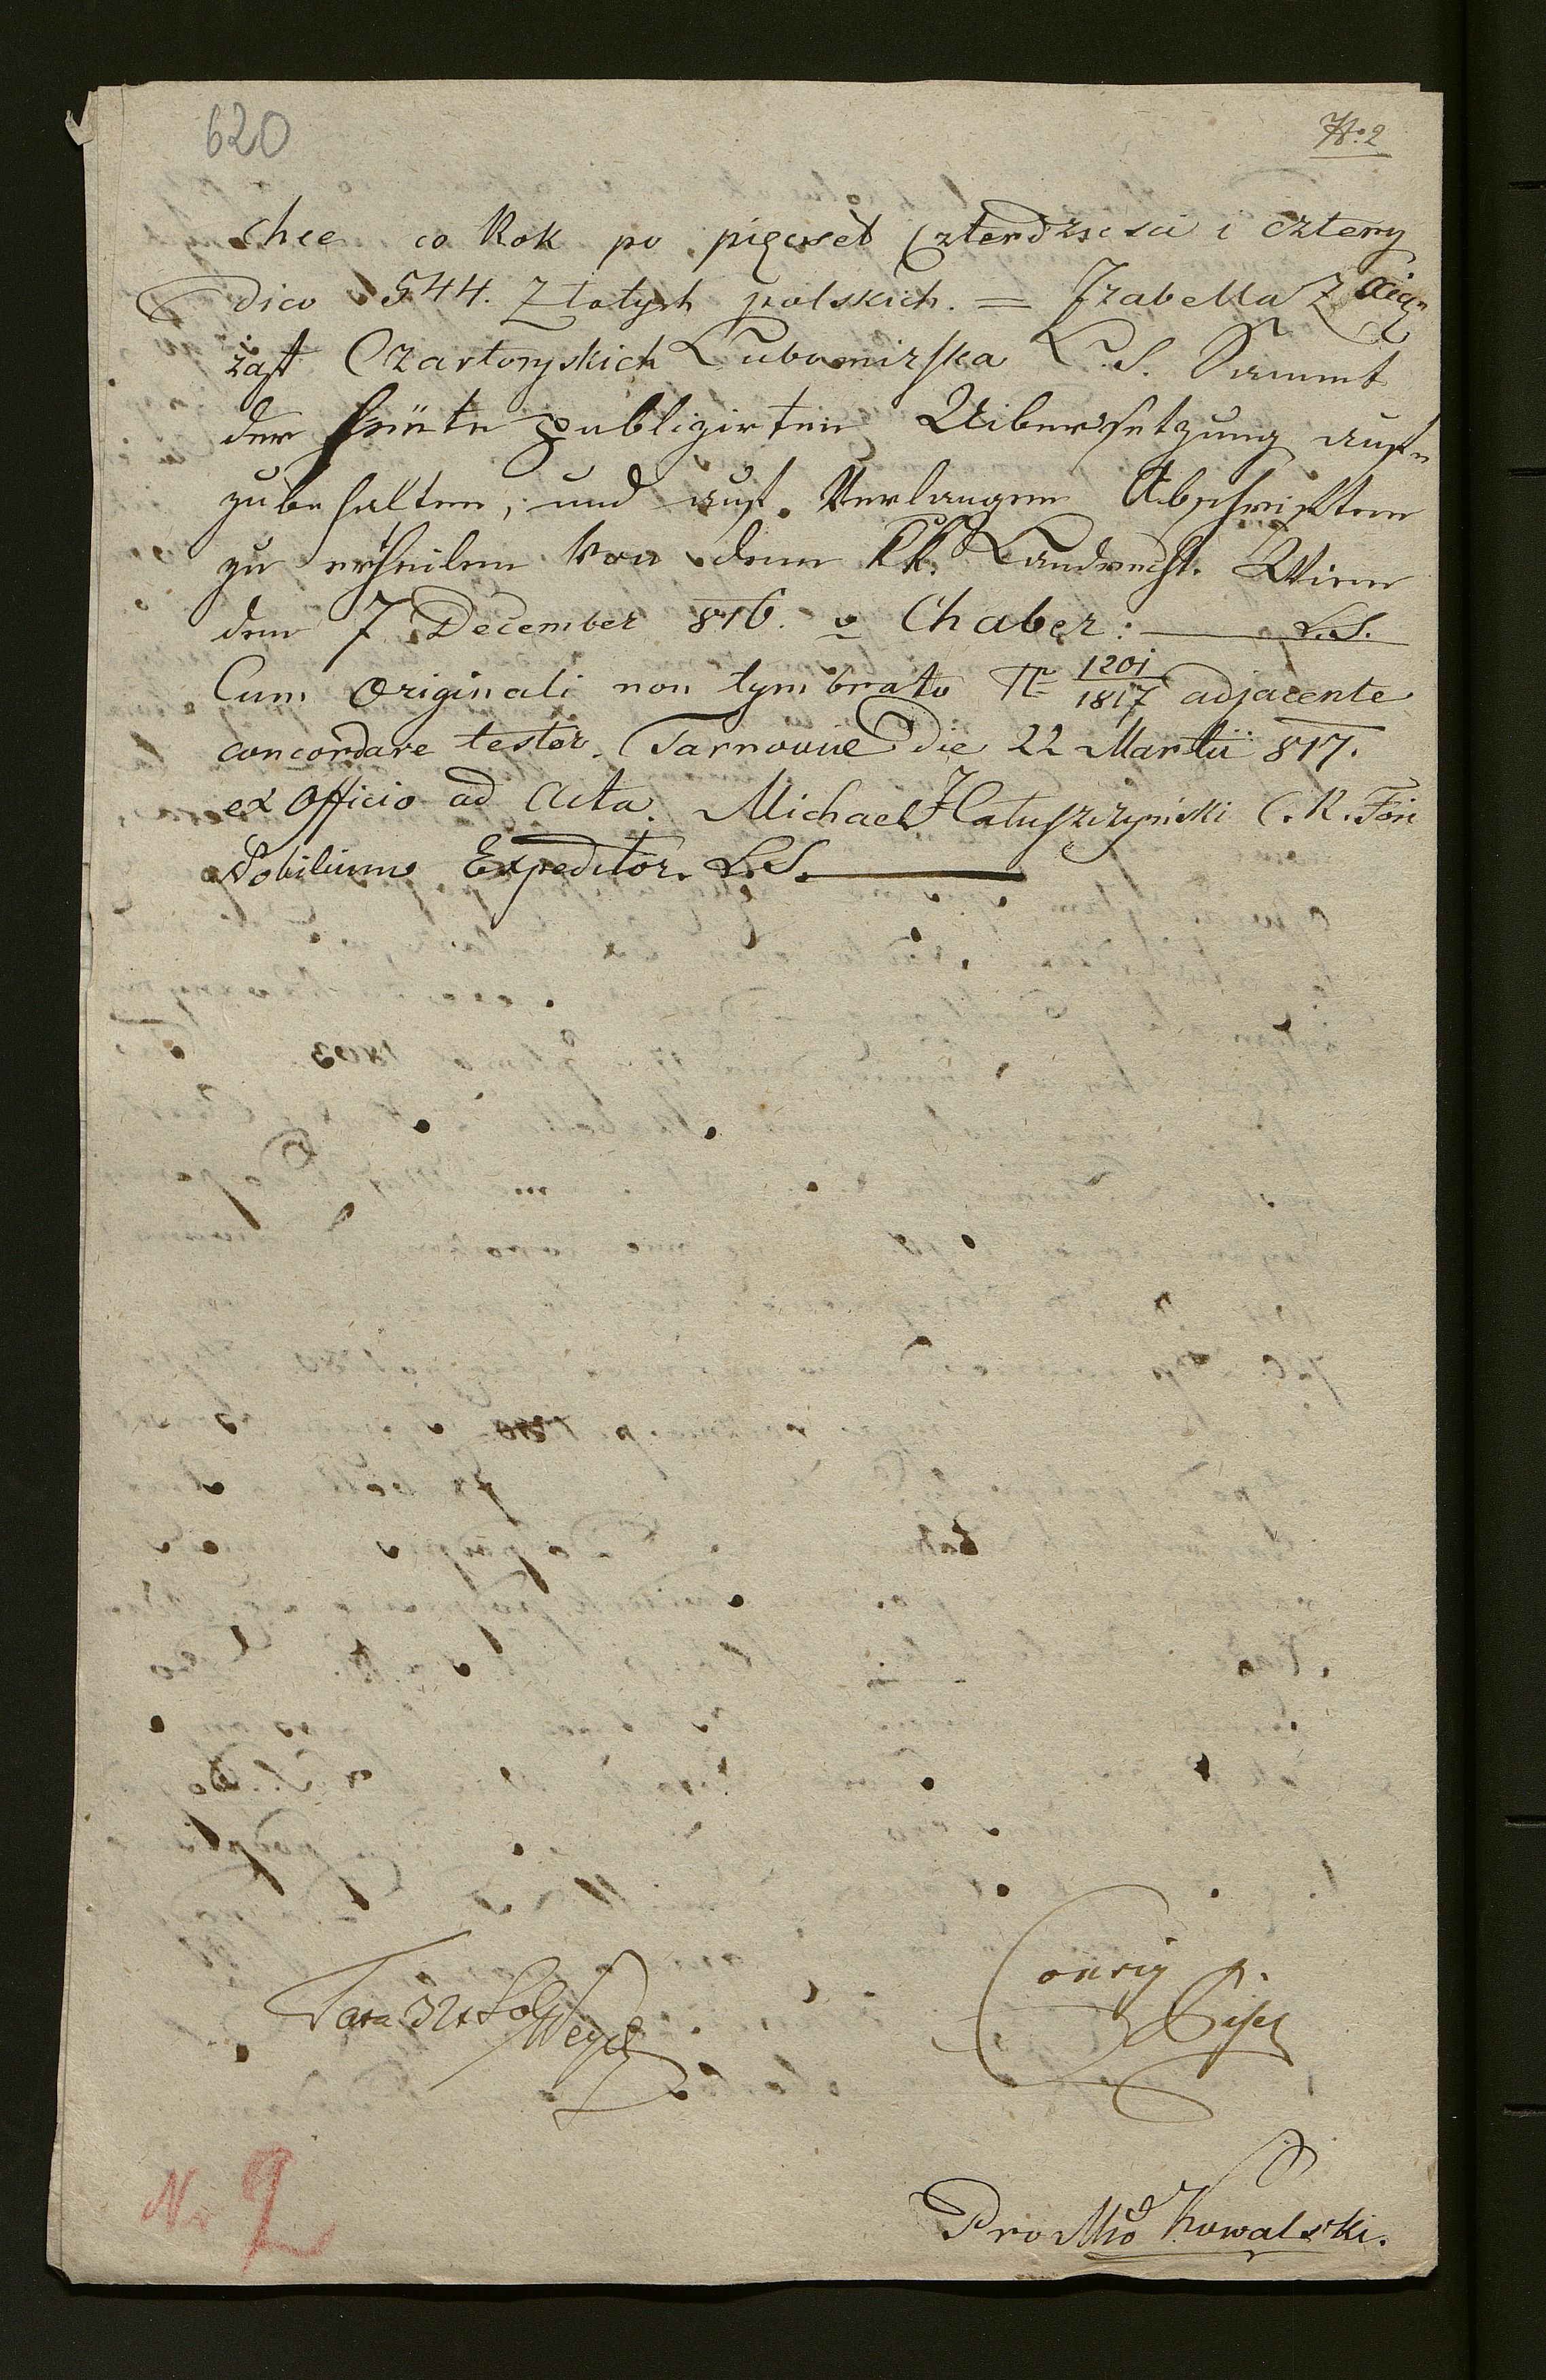 620
No. 2
chce co Rok po pięcset czterdzieści i cztery
dico 544. Złotych polskich. = Izabella z Xią„
żąt Czartoryskich Lubomirska L.S. Sammt
der heute publizirten Uibersetzung auf„
zubehalten, und auf Verlangen Abschriften
zu ertheilen Von dem k.k. Landrecht. Wien
den 7 December 816. Chaber: L.S.
Cum Originali non tymbrato No 1201/1817 adjacente
concordare testor. Tarnoviæ die 22 Martii 817.
ex Officio ad Acta. Michael Hałuszczyński C.R. Fori
Nobilium Expeditor. L.S.
Taxa 32x
Pro Mto Kowalski.
Nr 2